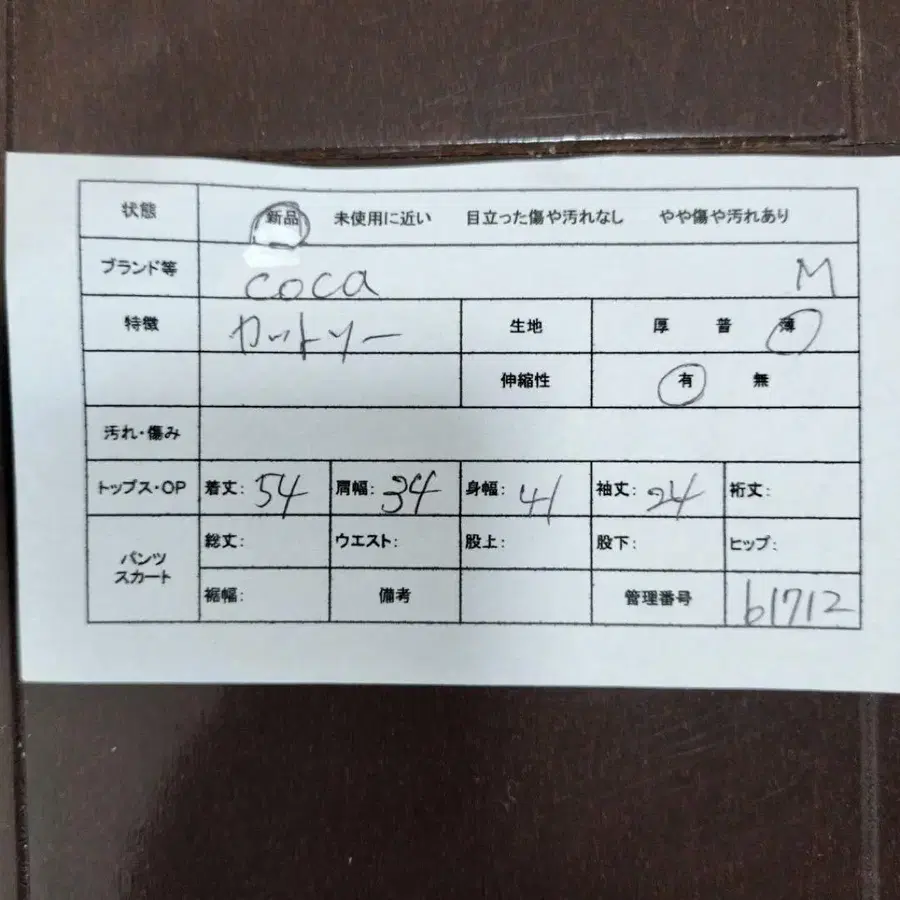 状態 新品 未使用に近い 目立った傷や汚れなし やや傷や汚れあり
ブランド等 coca M
特徴 カットソー 生地 厚 普 薄
伸縮性 有 無
汚れ・傷み
トップス・OP 着丈: 54 肩幅: 34 身幅: 41 袖丈: 24 裄丈:
パンツ スカート 総丈: ウエスト: 股上: 股下: ヒップ:
裾幅: 備考 管理番号 b1712